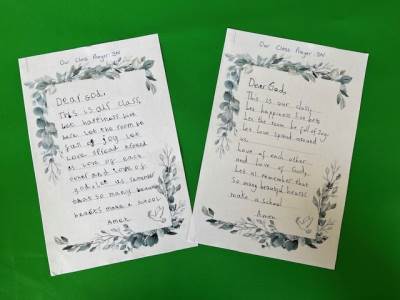 Our Class Prayer 3N
Dear God,
This is our class,
Let happiness live
here. Let the room be
full of joy. Let
Love spread around
us love of each
other and Love of
god, Let us remember
that so many beautiful
hearts make a school
Amen
Our Class Prayer 3N
Dear God,
This is our class,
Let happiness live here
Let the room be full of Joy.
Let love spread around
us
Love of each other
and Love of God,
Let us remember that
so many beautiful hearts
make a school
Amen